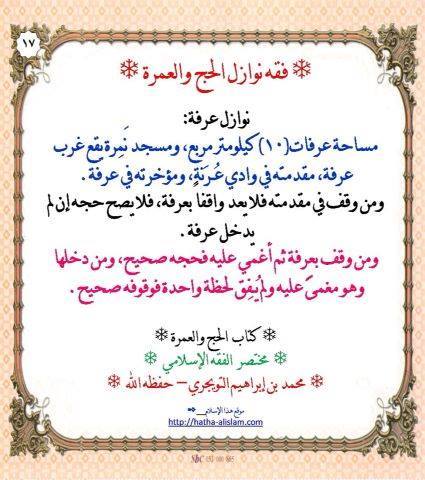 ١٧
❄ فقه نوازل الحج والعمرة ❄
نوازل عرفة:
مساحة عرفات (١٠) كيلومتر مربع، ومسجد نَمِرة يقع غرب
عرفة، مقدمته في وادي عُرَنَةٍ، ومؤخرته في عرفة.
ومن وقف في مقدمته فلا يعد واقفا بعرفة، فلا يصح حجه إن لم
يدخل عرفة.
ومن وقف بعرفة ثم أغمي عليه فحجه صحيح، ومن دخلها
وهو مغمىً عليه ولم يُفِق لحظة واحدة فوقوفه صحيح.
❄ كتاب الحج والعمرة ❄
❄ مختصر الفقه الإسلامي ❄
❄ محمد بن إبراهيم التويجري – حفظه الله ❄
موقع هذا الإسلام__➡
http://hatha-alislam.com